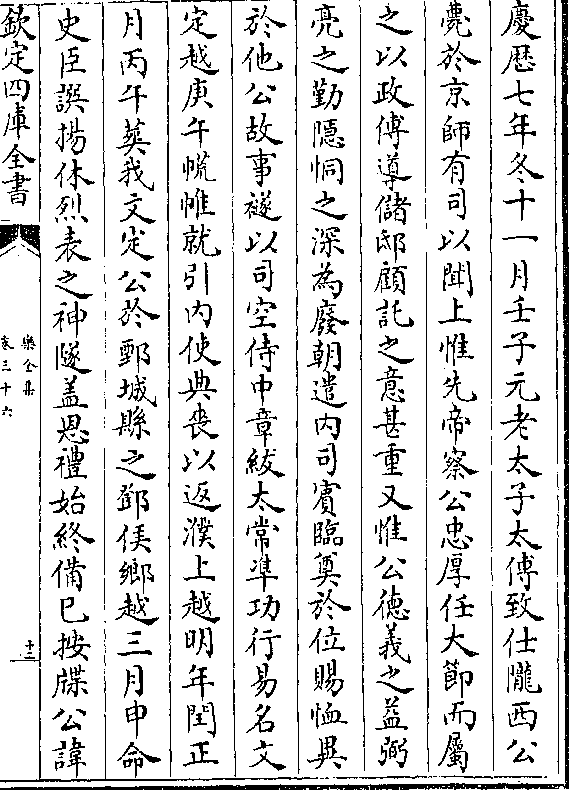 慶歴七年冬十一月壬子元老太子太傅致仕隴西公
薨於京師有司以聞上惟先帝察公忠厚任大節而屬
之以政傅導儲邸顧託之意甚重又惟公徳義之益弼
亮之勤隱恫之深為廢朝遣内司賔臨奠於位賜恤異
於他公故事襚以司空侍中章紱太常凖功行易名文
定越庚午㡆帷就引内使典喪以返濮上越明年閏正
月丙午葬我文定公於鄄城縣之鄧侯鄉越三月申命
史臣譔揚休烈表之神隧盖恩禮始終備已按牒公諱
欽定四庫全書
樂全集
卷三十六
十二